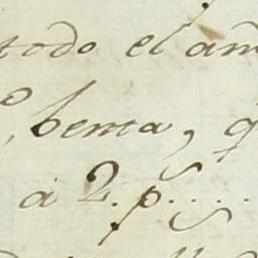 todo el añ
benta, q
a 2. p.s...